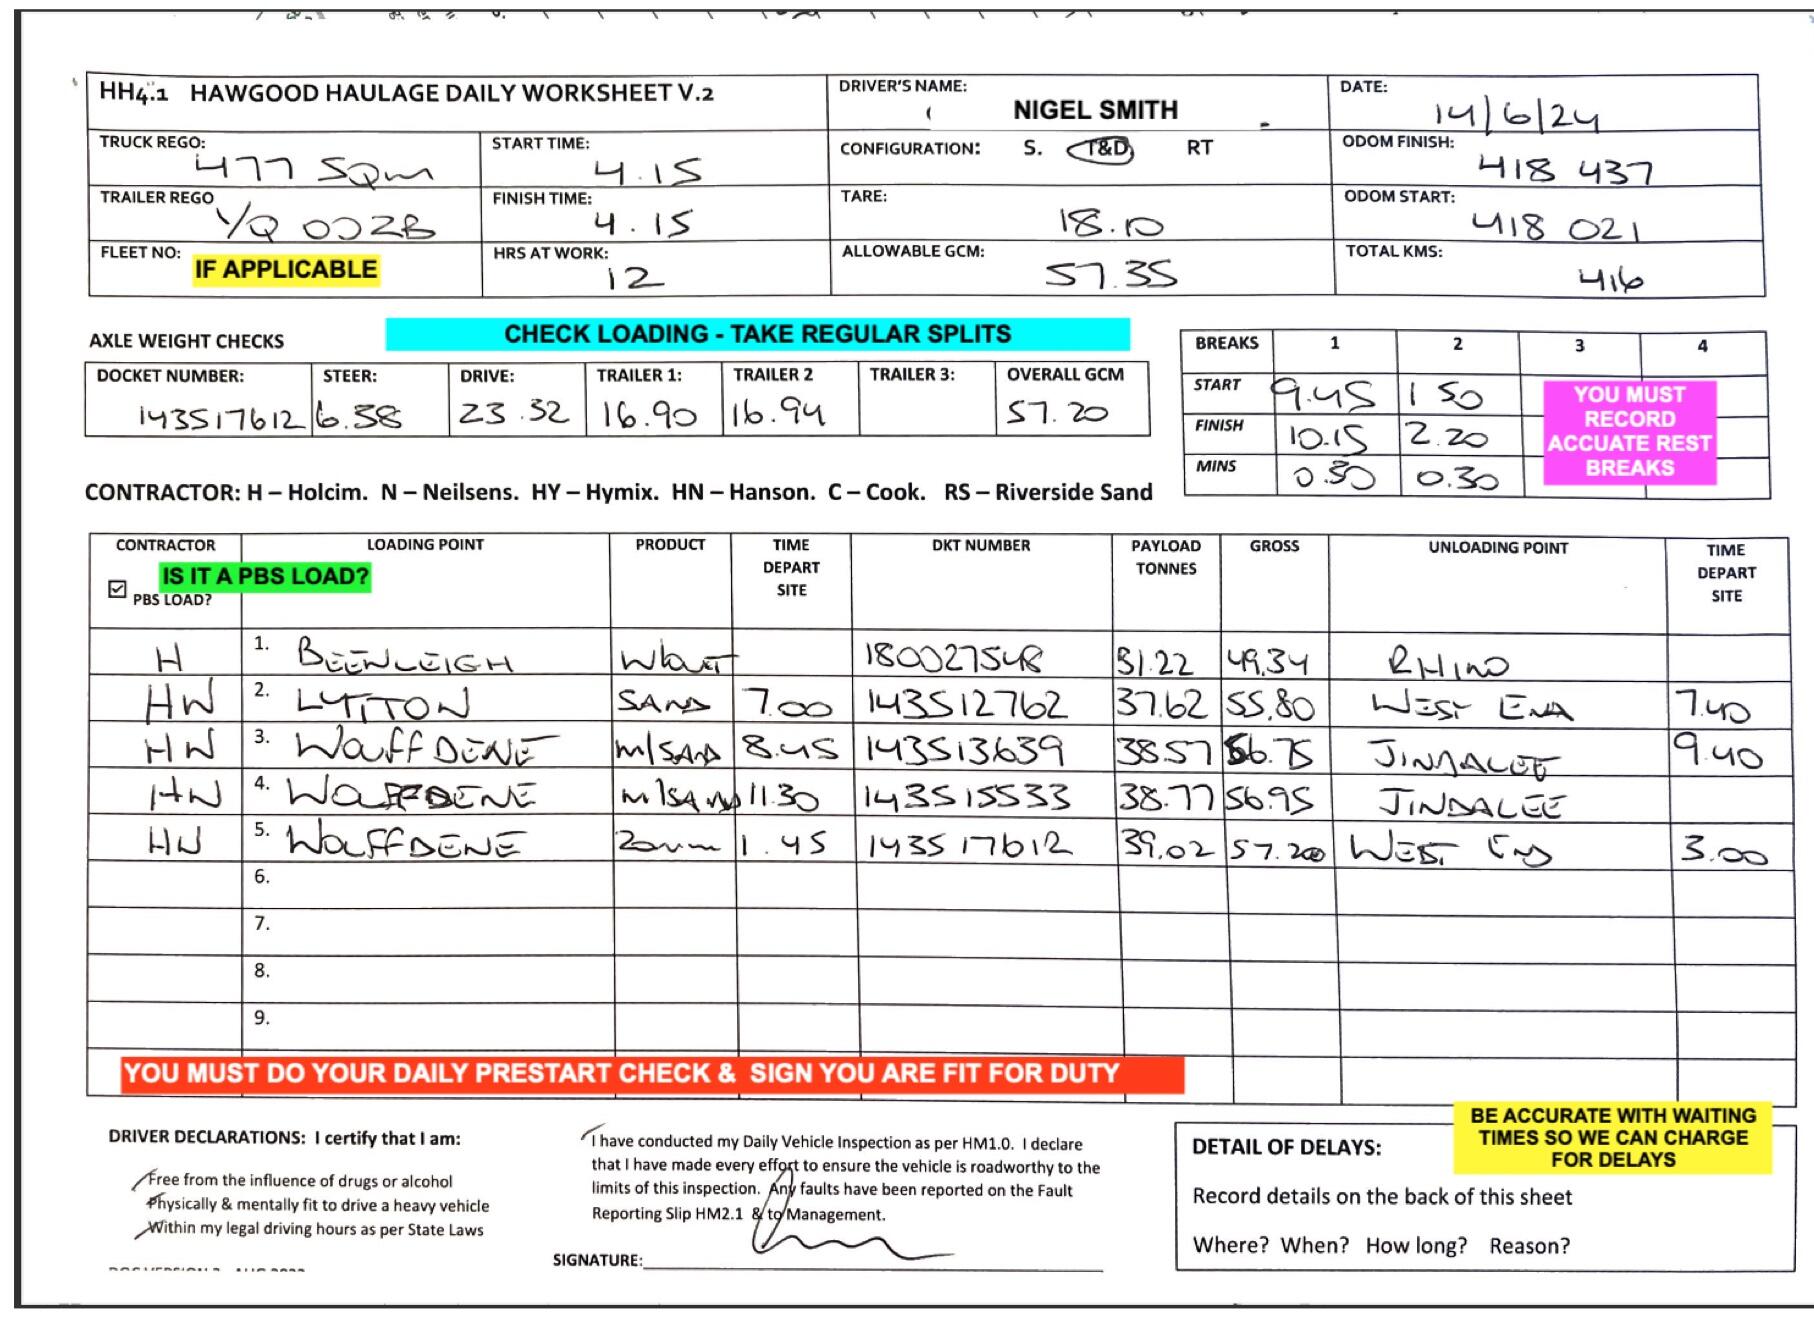 HH4.1 HAWGOOD HAULAGE DAILY WORKSHEET V.2
DRIVER'S NAME:
NIGEL SMITH
DATE:
14/6/24
TRUCK REGO:
477 SQM
START TIME:
4.15
CONFIGURATION: S. T&D RT
ODOM FINISH:
418 437
TRAILER REGO
YQ 00ZB
FINISH TIME:
4.15
TARE:
18.10
ODOM START:
418 021
FLEET NO:
IF APPLICABLE
HRS AT WORK:
12
ALLOWABLE GCM:
57.35
TOTAL KMS:
416
AXLE WEIGHT CHECKS
CHECK LOADING - TAKE REGULAR SPLITS
DOCKET NUMBER: STEER: DRIVE: TRAILER 1: TRAILER 2 TRAILER 3: OVERALL GCM
143517612 6.38 23.32 16.90 16.94 57.20
BREAKS 1 2 3 4
START 9.45 1 50
FINISH 10.15 2.20
MINS 0.30 0.30
YOU MUST
RECORD
ACCUATE REST
BREAKS
CONTRACTOR: H – Holcim. N – Neilsens. HY – Hymix. HN – Hanson. C – Cook. RS – Riverside Sand
CONTRACTOR
IS IT A PBS LOAD?
PBS LOAD?
LOADING POINT
PRODUCT
TIME
DEPART
SITE
DKT NUMBER
PAYLOAD
TONNES
GROSS
UNLOADING POINT
TIME
DEPART
SITE
H 1. BEENLEIGH 180027548 31.22 49.34 RHINO
HN 2. LYTTON SAND 7.00 143512762 37.62 55.80 WEST END 7.40
HN 3. WOLFFDENE M/SAND 8.45 143513639 38.57 56.75 JINDALEE 9.40
HN 4. WOLFFDENE M/SAND 11.30 143515533 38.77 56.95 JINDALEE
HN 5. WOLFFDENE 20mm 1.45 143517612 39.02 57.20 WEST END 3.00
6.
7.
8.
9.
YOU MUST DO YOUR DAILY PRESTART CHECK & SIGN YOU ARE FIT FOR DUTY
DRIVER DECLARATIONS: I certify that I am:
Free from the influence of drugs or alcohol
Physically & mentally fit to drive a heavy vehicle
Within my legal driving hours as per State Laws
I have conducted my Daily Vehicle Inspection as per HM1.0. I declare
that I have made every effort to ensure the vehicle is roadworthy to the
limits of this inspection. Any faults have been reported on the Fault
Reporting Slip HM2.1 & to Management.
SIGNATURE:
BE ACCURATE WITH WAITING
TIMES SO WE CAN CHARGE
FOR DELAYS
DETAIL OF DELAYS:
Record details on the back of this sheet
Where? When? How long? Reason?